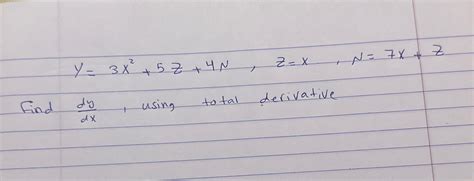 Y = 3X² + 5Z + 4N , Z=X , N= 7X + Z
Find dy/dx , using total derivative